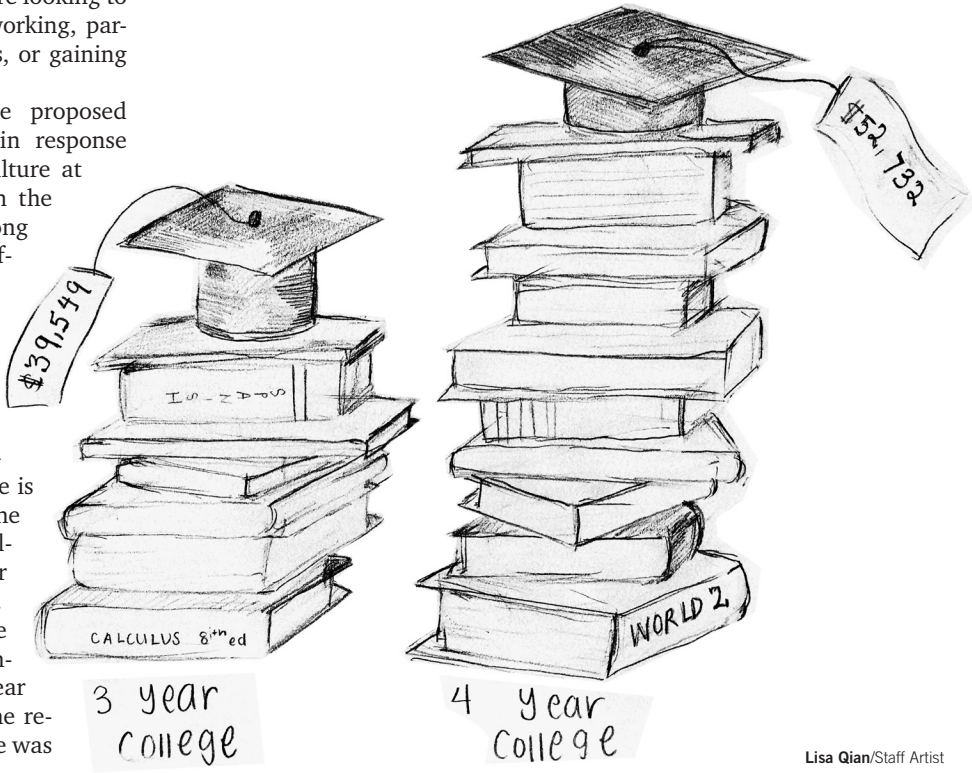 re looking to
working, par-
s, or gaining
e proposed
in response
lture at
n the
ong
f-
e is
ne
l-
r
e
n-
ear
ne re-
e was
$39,549
SPANISH
CALCULUS 8ith ed
3 year
college
$52,732
WORLD 2
4 year
college
Lisa Qian/Staff Artist